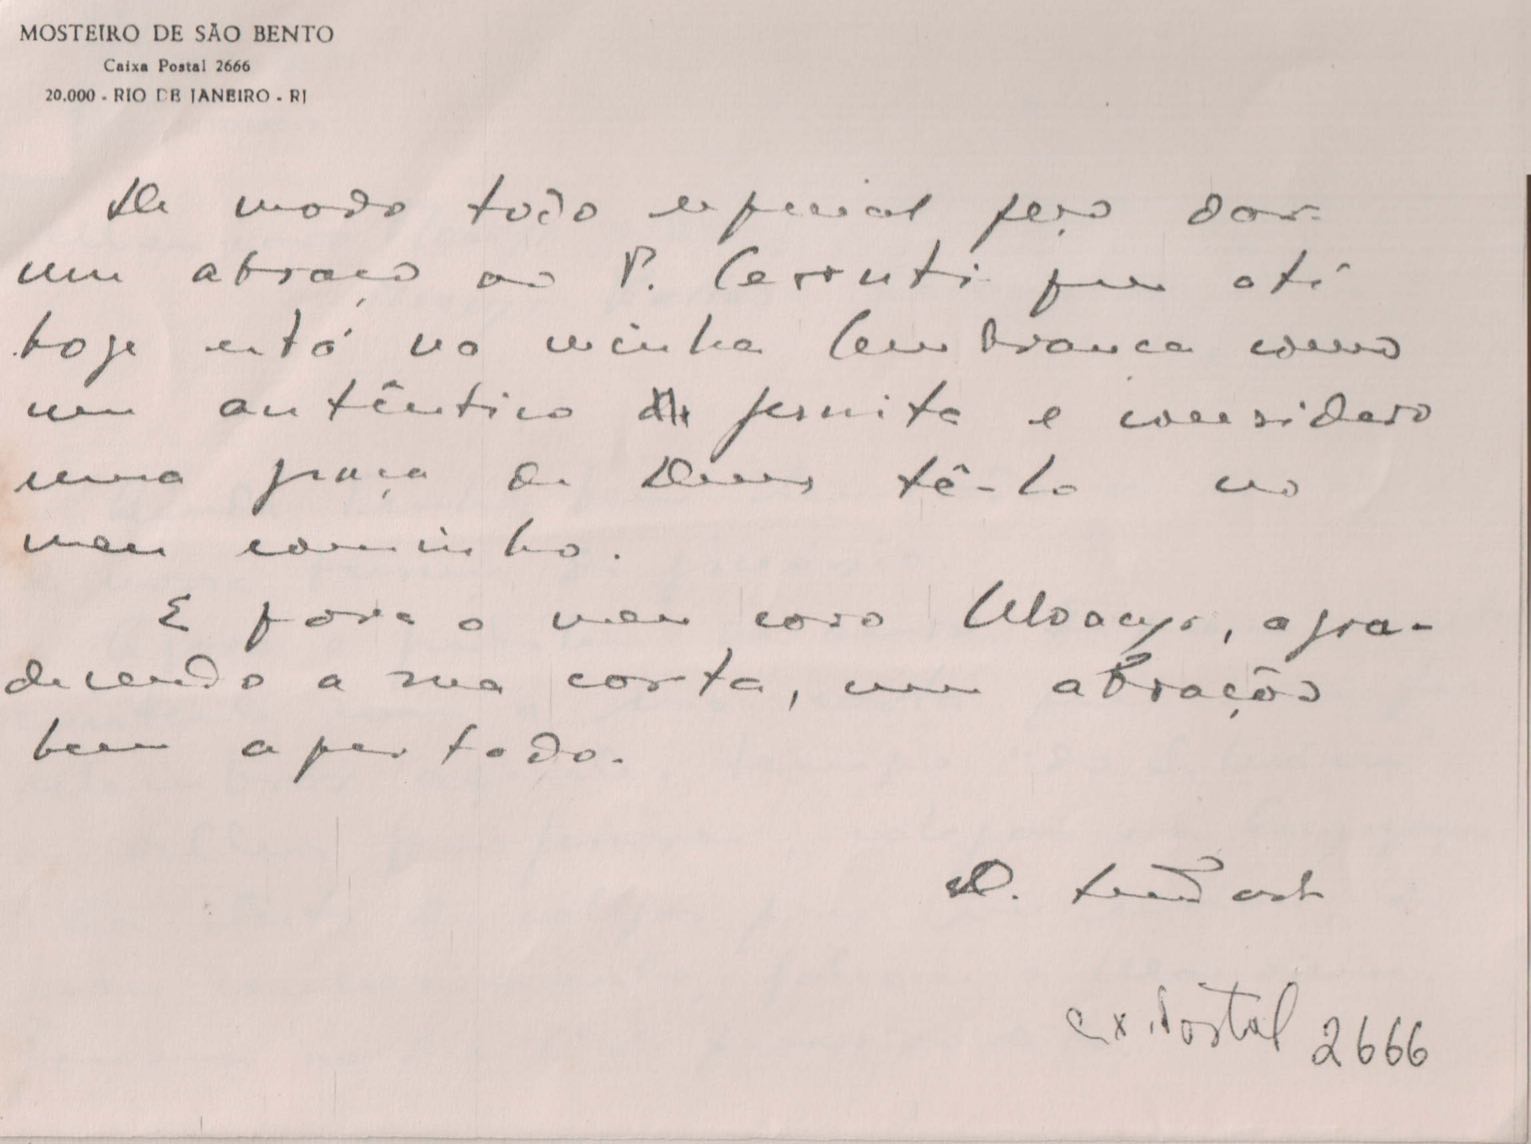 MOSTEIRO DE SÃO BENTO
Caixa Postal 2666
20.000 - RIO DE JANEIRO - RJ
De modo todo especial peço dar
um abraço ao P. Cerruti que até
hoje está na minha lembrança como
um autêntico jesuita e considero
uma graça de Deus tê-lo no
meu caminho.
E para o meu caro Moacyr, agra-
decendo a sua carta, um abração
bem apertado.
D.
cx. Postal 2666